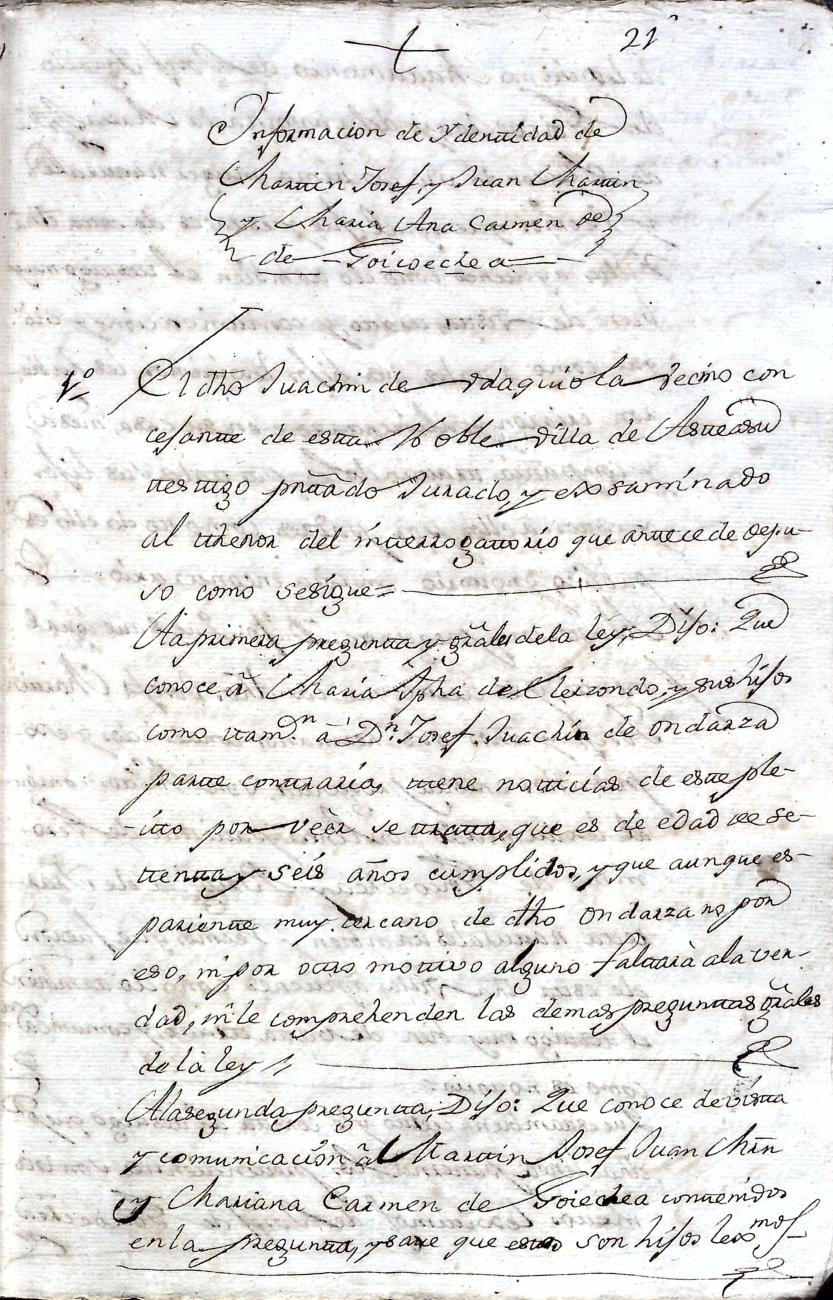 21
Informacion de Ydentidad de
Martin Josef, y Juan Martin
y Maria Ana Carmen de
de Goicoechea
1º El dho Juachin de Ydaquiola vecino con
cesante de esta Noble villa de Asteasu
testigo prntado Jurado, y exsaminado
al thenor del interrogattorio que antecede depu-
so como se sigue=
A la primera pregunta y grãles de la ley, Dijo: Que
conoce à Maria Jpha de Eleizondo, y sus hijos
como tamn. à Dn. Josef Juachin de Ondarza
parte contraria, tiene notticias de este ple-
ito por veèr se tratta, que es de edad de se-
tenta y seis años cumplidos, y que aunque es
pariente muy cercano de dho Ondarza no por
eso, ni por otro mottivo alguno faltarà a la ver-
dad, ni le comprehenden las demas preguntas grãles
de la ley
A la segunda pregunta, Dijo: Que conoce de vista
y comunicacion à Martin Josef Juan Mrn
y Mariana Carmen de Goiechea contenidos
en la pregunta, y save que estos son hijos lexmos